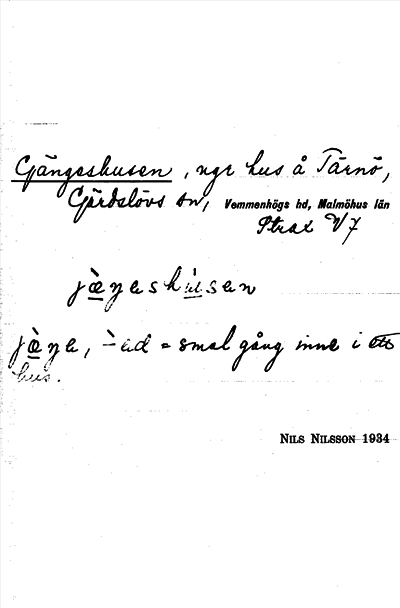 Gängeshusen, ngr hus å Tärnö,
Gärdslövs sn, Vemmenhögs hd, Malmöhus län
Strax V 7
jæ̀ŋeshúsen
jæ̀ŋe, -ed = smal gång inne i ett
hus.
NILS NILSSON 1934